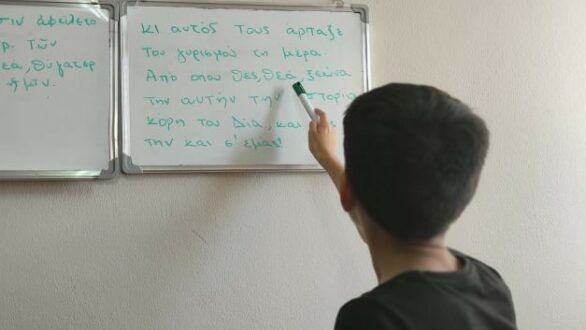 σιν ἀφείλετο
ρ. τῶν
εά, θύγατερ
ἡμῖν.
κι αυτός τους άρπαξε
του γυρισμού τη μέρα.
Από όπου θες, θεά, ξεκίνα
την αυτήν την στορία
κόρη του Δία, και
την και σ' εμάς!